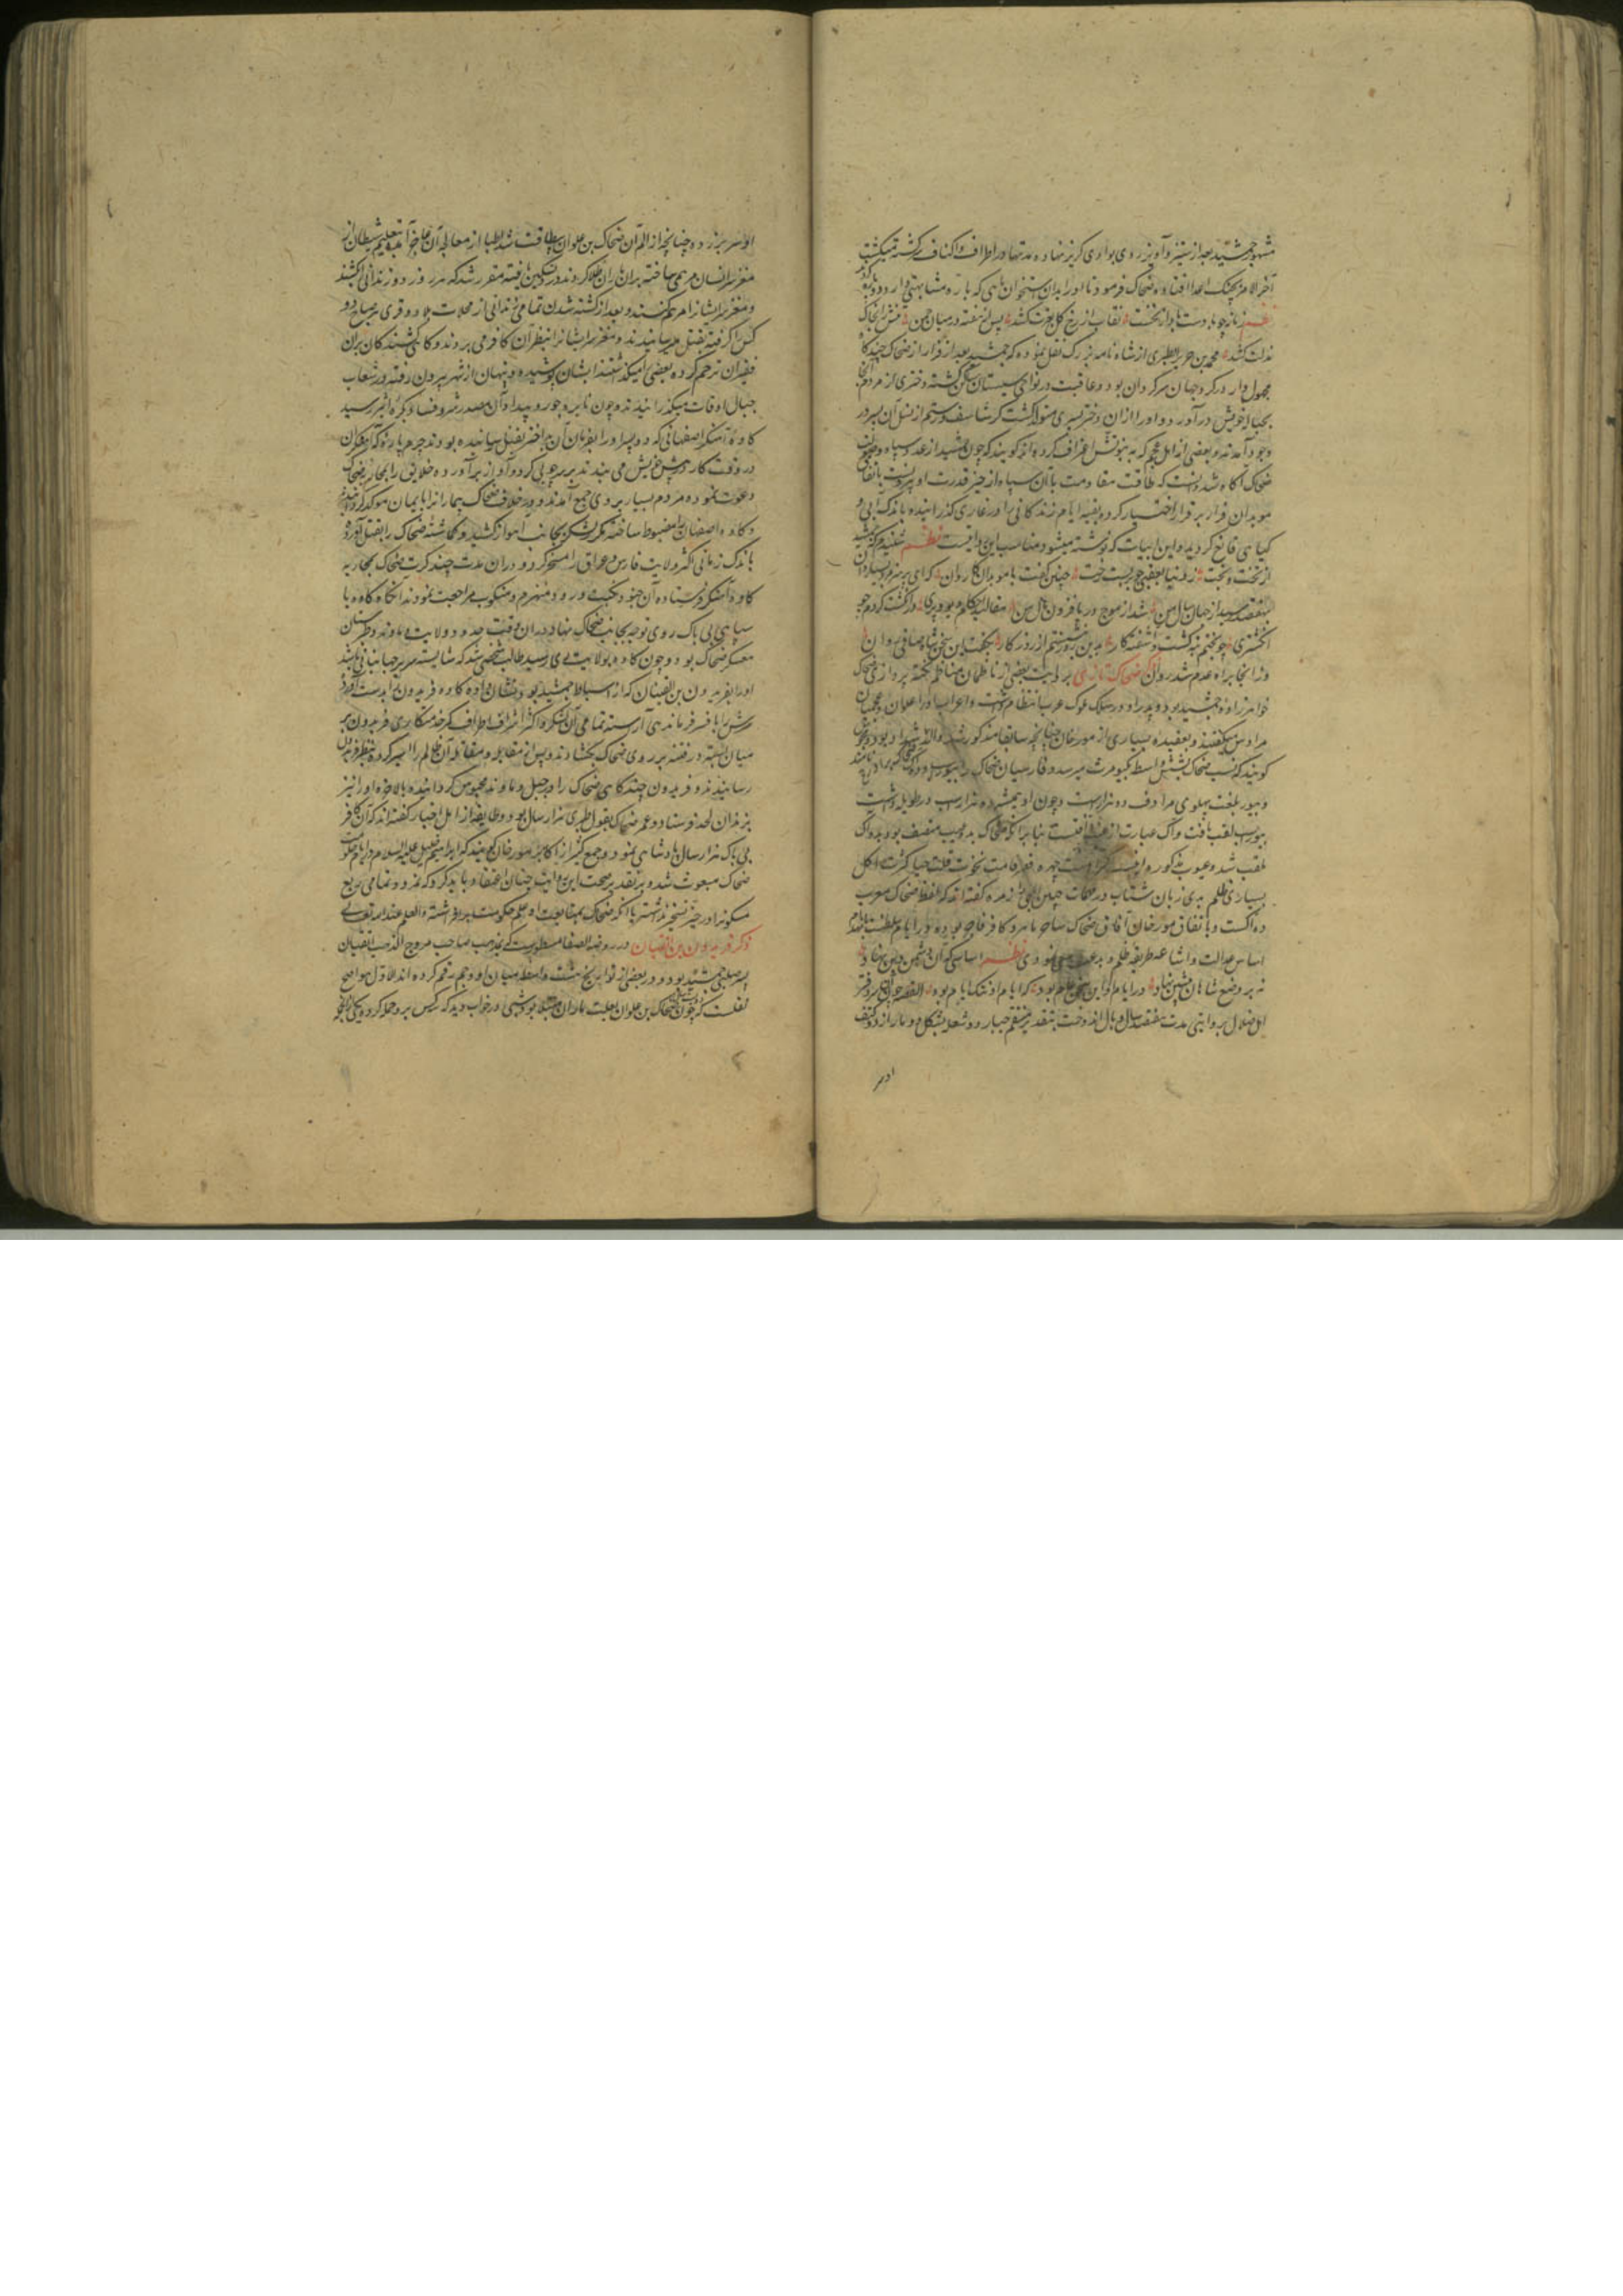 مشهور جمشید بعد از ستیز و آویز روی بوادی گریز نهاده مدتها در اطراف و اکناف سرگشته میگشت
آخر الامر بچنک اعدا افتاده ضحاک فرمود تا او را بدان استخوان ماهی که باره مشابهتی دارد دو پاره کردند
نظم زمانه چو باد ست باد از نخست نقاب از رخ کل بعزت کشد پس از هفته در میان چمن تنش را بخاک
مذلت کشد محمد بن جریر الطبری از شاه نامه بزرک نقل نموده که جمشید بعد از فرار از ضحاک چند کاه
مجهول وار در کرد جهان سرکردان بود و عاقبت در نواحی سیستان ساکن کشته دختری از مردم آنجا
بحباله خویش درآورد و او را از آن دختر پسری متولد کشت کرشاسف و رستم از نسل آن پسر در
وجود آمدند و بعضی از اهل عجم که به نبوتش اعتراف کرده اند کویند که چون جمشید از عدد سپاه و
ضحاک آکاه شد دانست که طاقت مقاومت با آن سپاه از حیز قدرت او بیرونست باتفاق
موبدان فرار بر قرار اختیار کرد و بقیه ایام زندکانی را در غاری کذرانیده باندک آبی و
کیاهی قانع کردید و این ابیات که نوشته میشود مناسب این واقعست نظم شنیدم که جمشید
از تخت و بخت ز دنیا بعقبی چو بربست رخت چنین کفت با موبدان کاردان که ای پر هنر مرد بسیار دان
بهفتصد رسید از جهان سال من شد از موج دریا فزون مال من
انکشتری چو بختم نه کشت و آشفته کار بدین روز پیشم از روزکار بکفت این سخن شاه صافی روان
وز آنجا براه عدم شد روان ذکر ضحاک تازی بروایت بعضی از ناظمان مناظم نکته پردازی ضحاک
خواهرزاده جمشید بود و پدر او در سلک ملوک عرب انتظام داشت و اعراب او را علوان و عجمیان
مرداس میکفتند و بعقیده بسیاری از مورخان چنانچه سابقا مذکور شد
کویند که نسب ضحاک بشش واسطه بکیومرث میرسد و فارسیان ضحاک را بیوراسب
و بیور بلغت پهلوی مرادف ده هزارست و چون او همیشه ده هزار اسب در طویله داشت
بیوراسب لقب یافت و آک عبارت از عیب و آفتست بنابر آنکه ضحاک بده عیب متصف بود بده آک
ملقب شد و عیوب مذکوره اینست کراهت چهره قصر قامت نخوت قلت حیا کثرت اکل
بسیاری ظلم بدی زبان شتاب در مهمات جبن ابلهی و زمره کفته اند که لفظ ضحاک معرب
ده اکست و باتفاق مورخان آفاق ضحاک ساحر ماهر و کافر فاجر بوده و در ایام سلطنت بانهدام
اساس عدالت و اشاعه طریقه ظلم و بدعت سعی نمودی نظم اساسی که آن دشمن دین نهاد
نه بر وضع شاهان پیشین نهاد در ایام او این سخن عام بود که ایام او ننک ایام بود القصه چون آن سردفتر
اهل ضلال بروایتی مدت هفتصد سال وبال اندوخت بتقدیر منتقم جبار دو شعله بشکل دو مار از دو کتف
او سر
او سر بر زده چنانچه از الم آن ضحاک بن علوان بیطاقت شد و اطبا از معالجه آن عاجز آمده بتعلیم شیطان از
مغز سر انسان مرهمی ساخته بران ماران طلا کردند و درد تسکین یافته مقرر شد که هر روز دو زندانی را بکشند
و مغز سر ایشانرا مرهم کنند و بعد از کشته شدن تمامی زندانی از محلات بلاد و قری هر صباح دو
کس را کرفته بقتل میرسانیدند و مغز سر ایشانرا بنظر آن کافر می بردند و کاهی کشندکان بران
فقیران ترحم کرده بعضی را میکذاشتند ایشان پوشیده و پنهان از شهر بیرون رفته در شعاب
جبال اوقات میکذرانیدند و چون نایره جور و بیداد آن مصدر شر و فساد بکره اثیر رسید
کاوه آهنکر اصفهانی که دو پسر او را بفرمان آن بداختر بقتل رسانیده بودند چرم پاره که آهنکران
در وقت کار در پیش خویش می بندند بر سر چوبی کرد و آواز برآورده خلایق را بمحاربه ضحاک
دعوت نموده مردم بسیار بر وی جمع آمدند و در خلاف ضحاک پیمانرا بایمان موکد کردانیدند
و کاوه اصفهان را مضبوط ساخته لشکر بجانب اهواز کشید و کماشته ضحاک را بقتل آورد و
باندک زمانی اکثر ولایت فارس و عراق را مسخر کرد و دران مدت چند کرت ضحاک بمحاربه
کاوه لشکر فرستاده آن جنود نکبت ورود منهزم و منکوب مراجعت نمودند آنکاه کاوه با
سپاهی بی باک روی توجه بجانب ضحاک نهاد و دران وقت حدود ولایت دماوند و طبرستان
معسکر ضحاک بود و چون کاوه بولایت ری رسید طالب شخصی شد که شایسته سریر جهانبانی باشد
او را بفریدون بن اثفیان که از اسباط جمشید بود نشان داده کاوه فریدون را بدست آورد
سرش را بافسر فرماندهی آراسته تمامی آن لشکر و اکثر اشراف اطراف کمر خدمتکاری فریدون بر
میان بسته در فتنه بر روی ضحاک بکشادند و پس از مقابله و مقاتله آن ظالم را اسیر کرده بنظر فریدون
رسانیدند و فریدون چند کاهی ضحاک را در جبل دماوند محبوس کردانیده بالاخره او را نیز
بزندان لحد فرستاد و عمر ضحاک بقول طبری هزار سال بود و طایفه از اهل اخبار کفته اند که آن کافر
بی باک هزار سال پادشاهی نمود و جمع کثیر از اکابر مورخان کویند که ابراهیم خلیل علیه السلام در ایام حکومت
ضحاک مبعوث شد و بر تقدیر صحت این روایت چنان اعتقاد باید کرد که نمرود تمامی ربع
مسکونرا در حیز تسخیر نداشته یا آنکه ضحاک بمتابعت او علم حکومت برافراشته و العلم عند الله تعالی
ذکر فریدون بن اثفیان در روضة الصفا مسطورست که بمذهب صاحب مروج الذهب اثفیان
پسر صلبی جمشید بود و در بعضی از تواریخ هشت واسطه میان او و جم رقم کرده اند قول اول اصح
نقلست که چون ضحاک بن علوان بعلت ماران مبتلا بود شبی در خواب دید که سه کس برو حمله کرده یکی از آنجمله